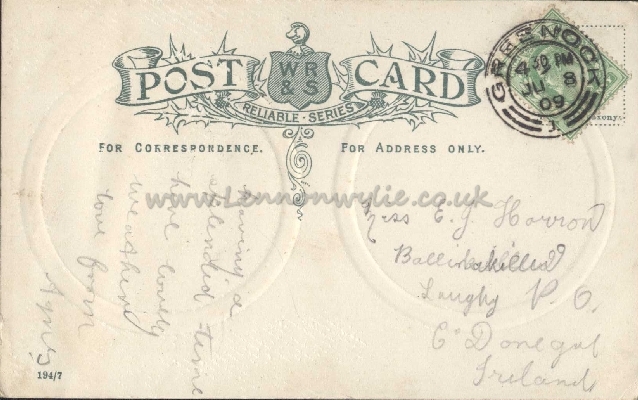 POST CARD
WR
& S
RELIABLE · SERIES
FOR CORRESPONDENCE.
FOR ADDRESS ONLY.
GREENOCK
4 30 PM
JU 8
09
www.Lennonwylie.co.uk
having a
splendid time
here lovely
weather
love from
Agnes
Miss E. J. Horron
Laughy P. O.
Co Donegal
Ireland
194/7